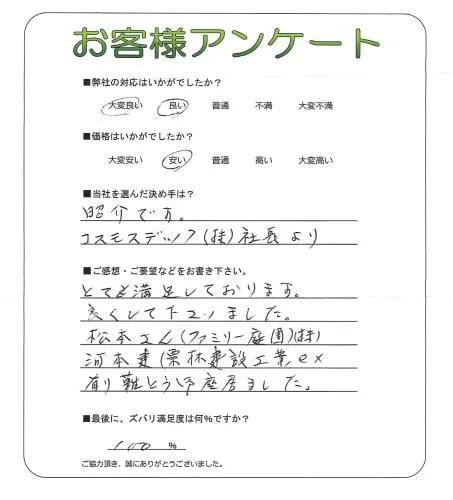 お客様アンケート
■弊社の対応はいかがでしたか？
大変良い 良い 普通 不満 大変不満
■価格はいかがでしたか？
大変安い 安い 普通 高い 大変高い
■当社を選んだ決め手は？
昭介です。
コスモステック(株)社長より
■ご感想・ご要望などをお書き下さい。
とても満足しております。
良くして下さいました。
松本さん(ファミリー庭園)(株)
河本建(栗林建設工業
有り難とう御座居ました。
■最後に、ズバリ満足度は何%ですか？
100 %
ご協力頂き、誠にありがとうございました。